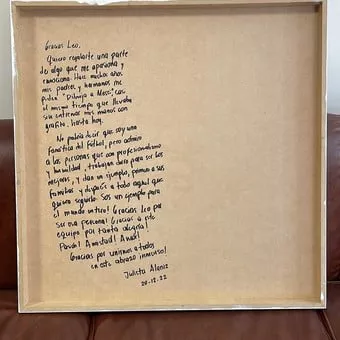 Gracias Leo,
Quiero regalarte una parte
de algo que me apasiona y
emociona. Hace muchos años
mis padres y hermanos me
piden "Dibuja a Messi", casi
el mismo tiempo que llevaba
sin entrenar mis manos con
grafito, hasta hoy.
No podría decir que soy una
fanática del fútbol, pero admiro
a las personas que con profesionalismo
y humildad, trabajan duro para ser los
mejores, y dan un ejemplo, primero a sus
familias y después a todo aquel que
quiera seguirlo. Sos un ejemplo para
el mundo entero! Gracias Leo por
ser esa persona! Gracias a este
equipo por tanta alegría!
Pasión! Amistad! Amor!
Gracias por unirnos a todos
en este abrazo inmenso!
Julieta Alaniz
20.12.22